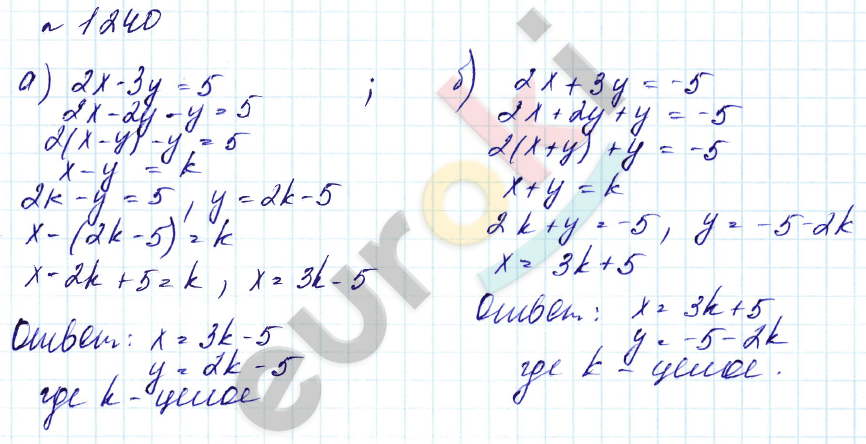 ~ 1240
а) 2x - 3y = 5 ;
2x - 2y - y = 5
2(x - y) - y = 5
x - y = k
2k - y = 5 , y = 2k - 5
x - (2k - 5) = k
x - 2k + 5 = k , x = 3k - 5
Ответ: x = 3k - 5
y = 2k - 5
где k - целое
б) 2x + 3y = -5
2x + 2y + y = -5
2(x + y) + y = -5
x + y = k
2k + y = -5, y = -5 - 2k
x = 3k + 5
Ответ: x = 3k + 5
y = -5 - 2k
где k - целое.
euroki